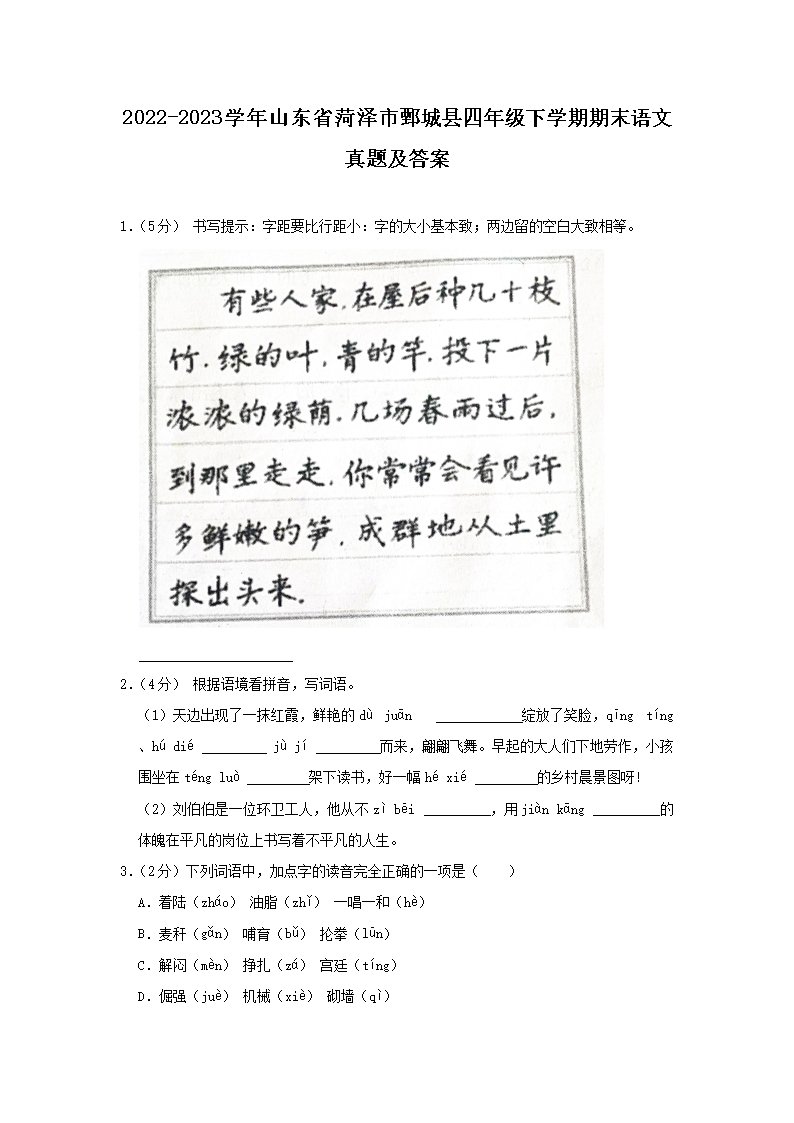 2022-2023学年山东省菏泽市鄄城县四年级下学期期末语文
真题及答案
1.（5分） 书写提示：字距要比行距小：字的大小基本致；两边留的空白大致相等。
有些人家.在屋后种几十枝
竹.绿的叶,青的竿.投下一片
浓浓的绿荫.几场春雨过后,
到那里走走,你常常会看见许
多鲜嫩的笋,成群地从土里
探出头来.
2.（4分） 根据语境看拼音，写词语。
（1）天边出现了一抹红霞，鲜艳的dù juān ____________绽放了笑脸，qīng tíng
、hú dié _________ jù jí _________而来，翩翩飞舞。早起的大人们下地劳作，小孩
围坐在téng luò _________架下读书，好一幅hé xié _________的乡村晨景图呀！
（2）刘伯伯是一位环卫工人，他从不zì bēi _________，用jiàn kāng _________的
体魄在平凡的岗位上书写着不平凡的人生。
3.（2分）下列词语中，加点字的读音完全正确的一项是（　　）
A．着陆（zháo） 油脂（zhǐ） 一唱一和（hè）
B．麦秆（gǎn） 哺育（bǔ） 抡拳（lūn）
C．解闷（mèn） 挣扎（zá） 宫廷（tíng）
D．倔强（juè） 机械（xiè） 砌墙（qì）